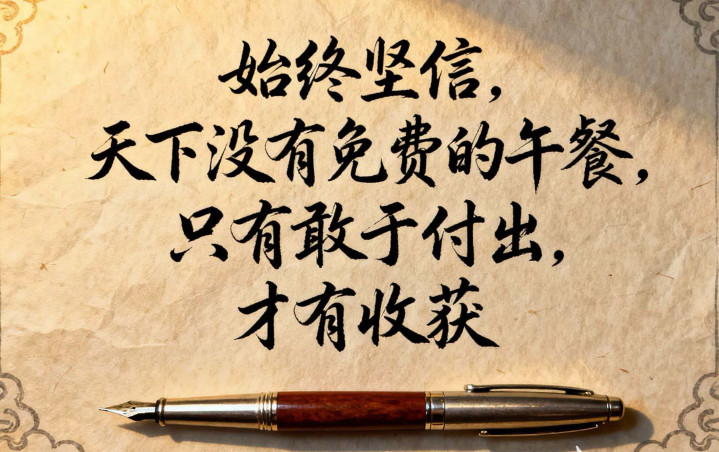 始终坚信，
天下没有免费的午餐，
只有敢于付出，
才有收获